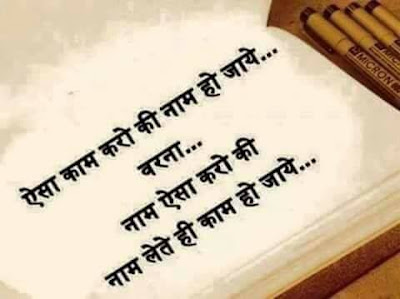 ऐसा काम करो की नाम हो जाये...
वरना...
नाम ऐसा करो की
नाम लेते ही काम हो जाये...
MICRON
MICRON